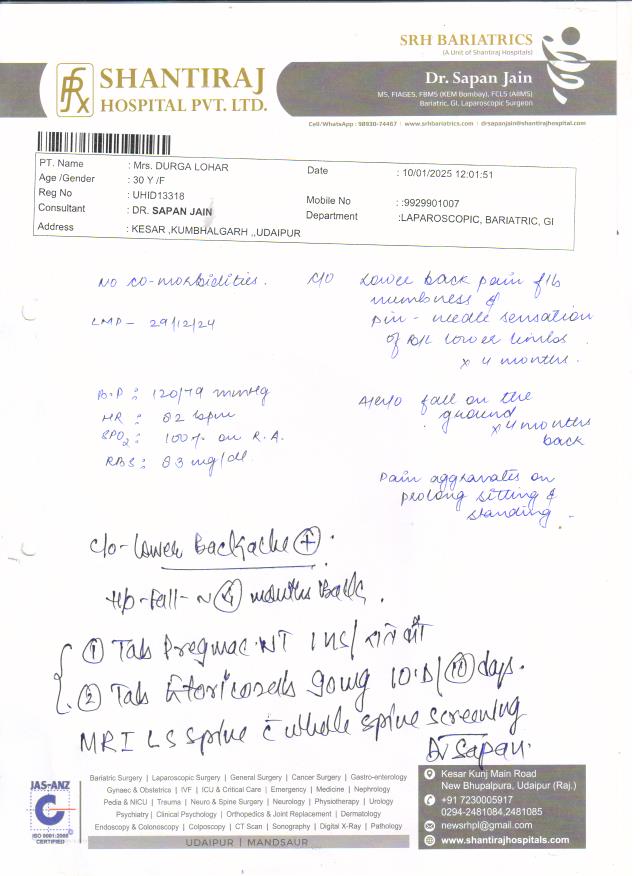 SRH BARIATRICS
(A Unit of Shantiraj Hospitals)
SHANTIRAJ
HOSPITAL PVT. LTD.
Dr. Sapan Jain
MS, FIAGES, FBMS (KEM Bombay), FCLS (AIIMS)
Bariatric, GI, Laparoscopic Surgeon
Cell/WhatsApp : 98930-74467 | www.srhbariatrics.com | drsapanjain@shantirajhospital.com
PT. Name : Mrs. DURGA LOHAR
Date : 10/01/2025 12:01:51
Age /Gender : 30 Y /F
Reg No : UHID13318
Mobile No : :9929901007
Consultant : DR. SAPAN JAIN
Department :LAPAROSCOPIC, BARIATRIC, GI
Address : KESAR ,KUMBHALGARH ,,UDAIPUR
No co-morbidities.
LMP - 29/12/24
C/O Lower back pain f/b
numbness &
pin - needle sensation
of B/L lower limbs
x 4 months.
B.P : 120/79 mmHg
HR : 82 bpm
SPO2 : 100% on R.A.
RBS : 83 mg/dl.
A/H/O fall on the
ground
x 4 months
back
Pain aggravates on
prolong sitting &
standing.
C/o - Lower Backache (+).
H/o - Fall - ~ (4) months Back.
(1) Tab Pregmac NT 1 HS /
(2) Tab Etoricoxeb 90mg 1 O.D / (10) days.
MRI LS spine c whole spine screening
Dr Sapan.
JAS-ANZ
ISO 9001:2008
CERTIFIED
Bariatric Surgery | Laparoscopic Surgery | General Surgery | Cancer Surgery | Gastro-enterology
Gynaec & Obstetrics | IVF | ICU & Critical Care | Emergency | Medicine | Nephrology
Pedia & NICU | Trauma | Neuro & Spine Surgery | Neurology | Physiotherapy | Urology
Psychiatry | Clinical Psychology | Orthopedics & Joint Replacement | Dermatology
Endoscopy & Colonoscopy | Colposcopy | CT Scan | Sonography | Digital X-Ray | Pathology
UDAIPUR | MANDSAUR
Kesar Kunj Main Road
New Bhupalpura, Udaipur (Raj.)
+91 7230005917
0294-2481084,2481085
newsrhpl@gmail.com
www.shantirajhospitals.com